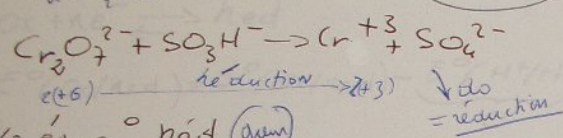 Cr₂O₇²⁻ + SO₃H⁻ → Cr⁺³ + SO₄²⁻
2(+6) réduction → 2(+3) ↓ do
= réduction